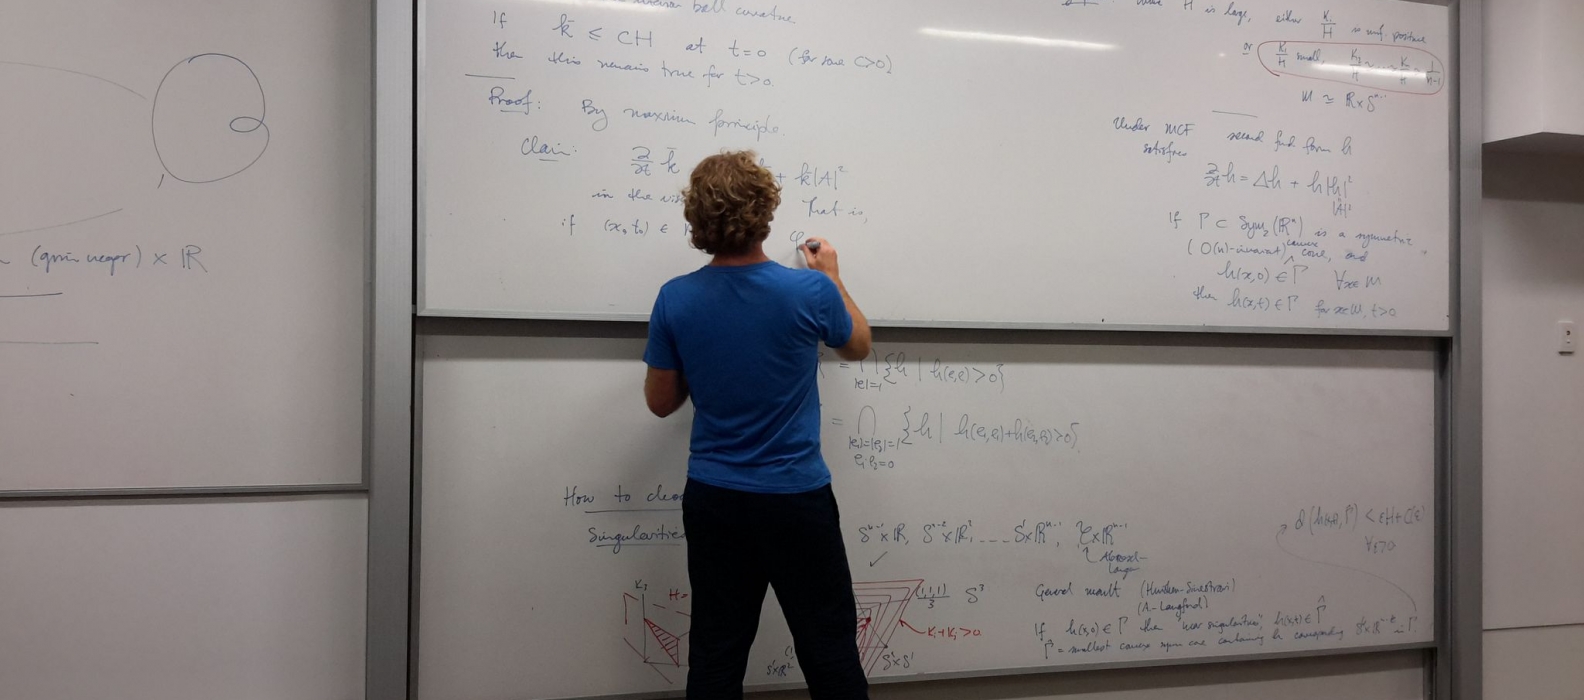 (grim reaper) × ℝ
ball curvature
If k̄ ≤ CH at t=0 (for some C>0)
then this remains true for t>0.
Proof: By maximum principle.
Claim: ∂/∂t k̄ + k̄|A|²
in the That is,
if (x₀,t₀) ∈ φ
H is large, either K₁/H is unif. positive
or K₁/H small, K₂/H K/H 1/(n-1)
M ≃ ℝ×Sⁿ⁻¹
Under MCF second fund form h
satisfies
∂/∂t h = Δh + h|h|²
|A|²
If Γ ⊂ Sym₂(ℝⁿ) is a symmetric
(O(n)-invariant) convex cone, and
h(x,0) ∈ Γ ∀x∈M
then h(x,t) ∈ Γ for x∈M, t>0
= ⋂ {h | h(e,e)>0}
|e|=1
= ⋂ {h | h(e₁,e₁)+h(e₂,e₂)>0}
|e₁|=|e₂|=1
e₁·e₂=0
How to
Singularities Sⁿ⁻¹×ℝ, Sⁿ⁻²×ℝ², .... S¹×ℝⁿ⁻¹, ×ℝⁿ⁻¹
✓ Abresch-
Langer
d(h(x,t),Γ̂) < εH + C(ε)
∀ε>0
K₃ H=
(1,1,1)/3 S³
Kᵢ+Kⱼ>0
S¹×ℝ² S¹×S¹
General result (Huisken-Sinestrari)
(A-Langford)
If h(x,0) ∈ Γ then 'near singularities', h(x,t) ∈ Γ̂
Γ̂ = smallest convex symm cone containing h corresponding